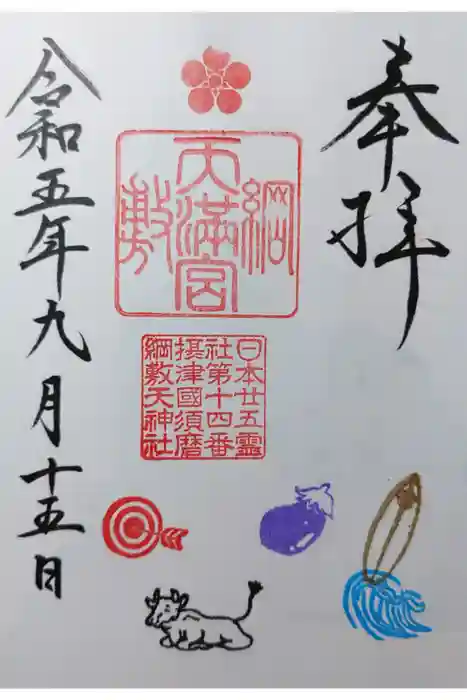 奉拝
綱敷天満宮
日本廿五霊
社第十四番
摂津國須磨
綱敷天神社
令和五年九月十五日